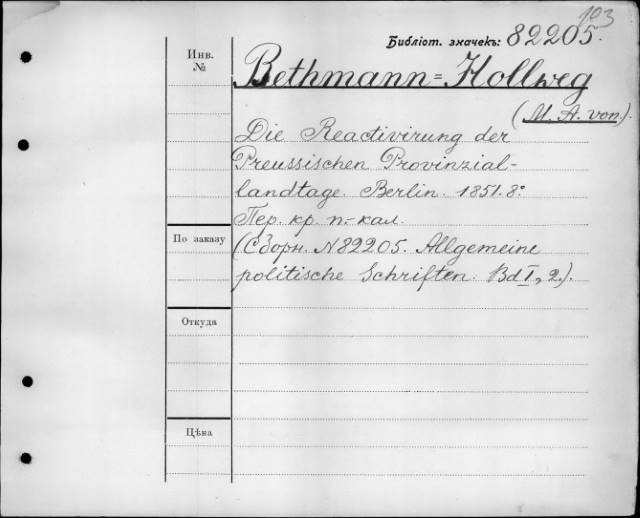 103
Библіот. значекъ: 82205.
Инв.
№
Bethmann=Hollweg
(M. A. von.).
Die Reactivirung der
Preussischen Provinzial-
landtage. Berlin. 1851. 8º
Пер. кр. п.-кал.
По заказу
(Сборн. N 82205. Allgemeine
politische Schriften. Bd I, 2.).
Откуда
Цѣна